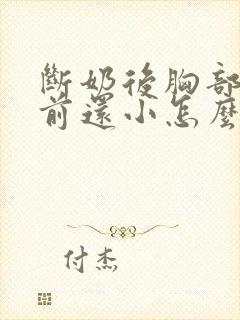 斷奶後胸部
前還小怎麼
付杰